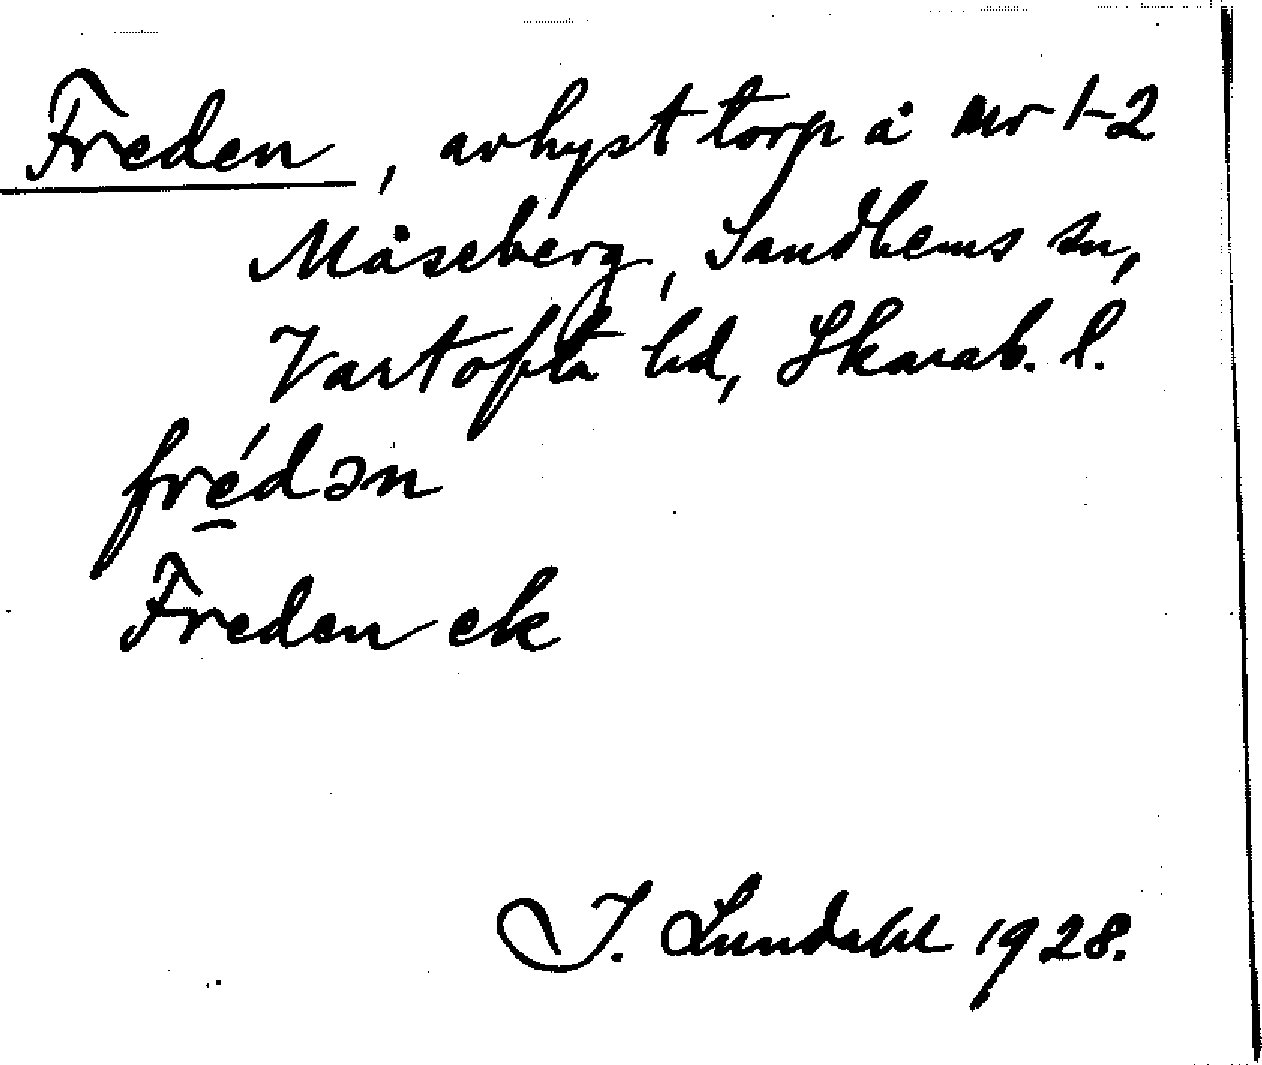 Freden, avhyst torp å nr 1-2
Måseberg, Sandhems sn,
Vartofta hd, Skarab. l.
fré̲dən
Freden ek
I. Lundahl 1928.